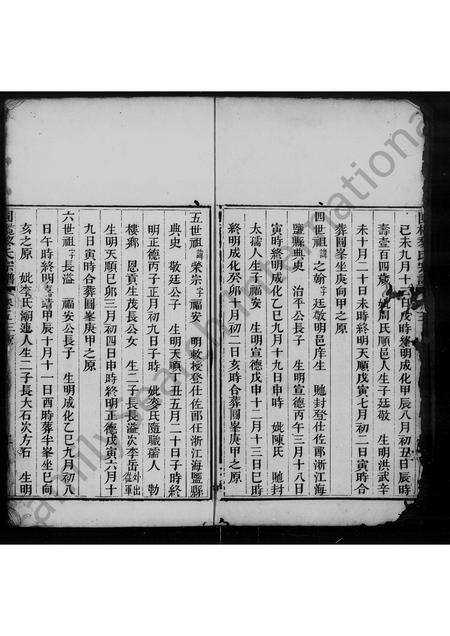 已未九月十 戊時終明成化甲辰八月初五日辰時
壽壹百四歲 妣周氏順邑人生子廷敬 生明洪武辛
未十月二十日未時終明天順戊寅七月初二日寅時合
葬圓峯坐庚向甲之原
四世祖 之翰 廷敬明邑庠生 馳封登仕佐郎浙江海
鹽縣典史 治平公長子 生明宣德丙午三月十八日
寅時終明成化乙巳九月十九日申時 妣陳氏 馳封
太孺人生子福安 生明宣德戊申十二月十三日巳時
終明成化癸卯十月初二日亥時合葬圓峯庚甲之原
五世祖諱榮宗字福安 明敕授登仕佐郎任浙江海鹽縣
典史 敬廷公子 生明天順丁丑五月二十日子時終
明正德丙子正月初九日子時 妣李氏隨職孺人 勒
樓鄉 恩貢生茂長公女 生二子長長溢次李岳
生明天順己卯三月初四日申時終明正德戊寅六月十
九日寅時合葬圓峯庚甲之原
六世祖 長溢 福安公長子 生明成化乙巳九月初八
日午時終明 靖甲辰十月十一日酉時葬半峯坐巳向
亥之原 妣李氏 人生二子長大石次方石 生明
FamilySearch International